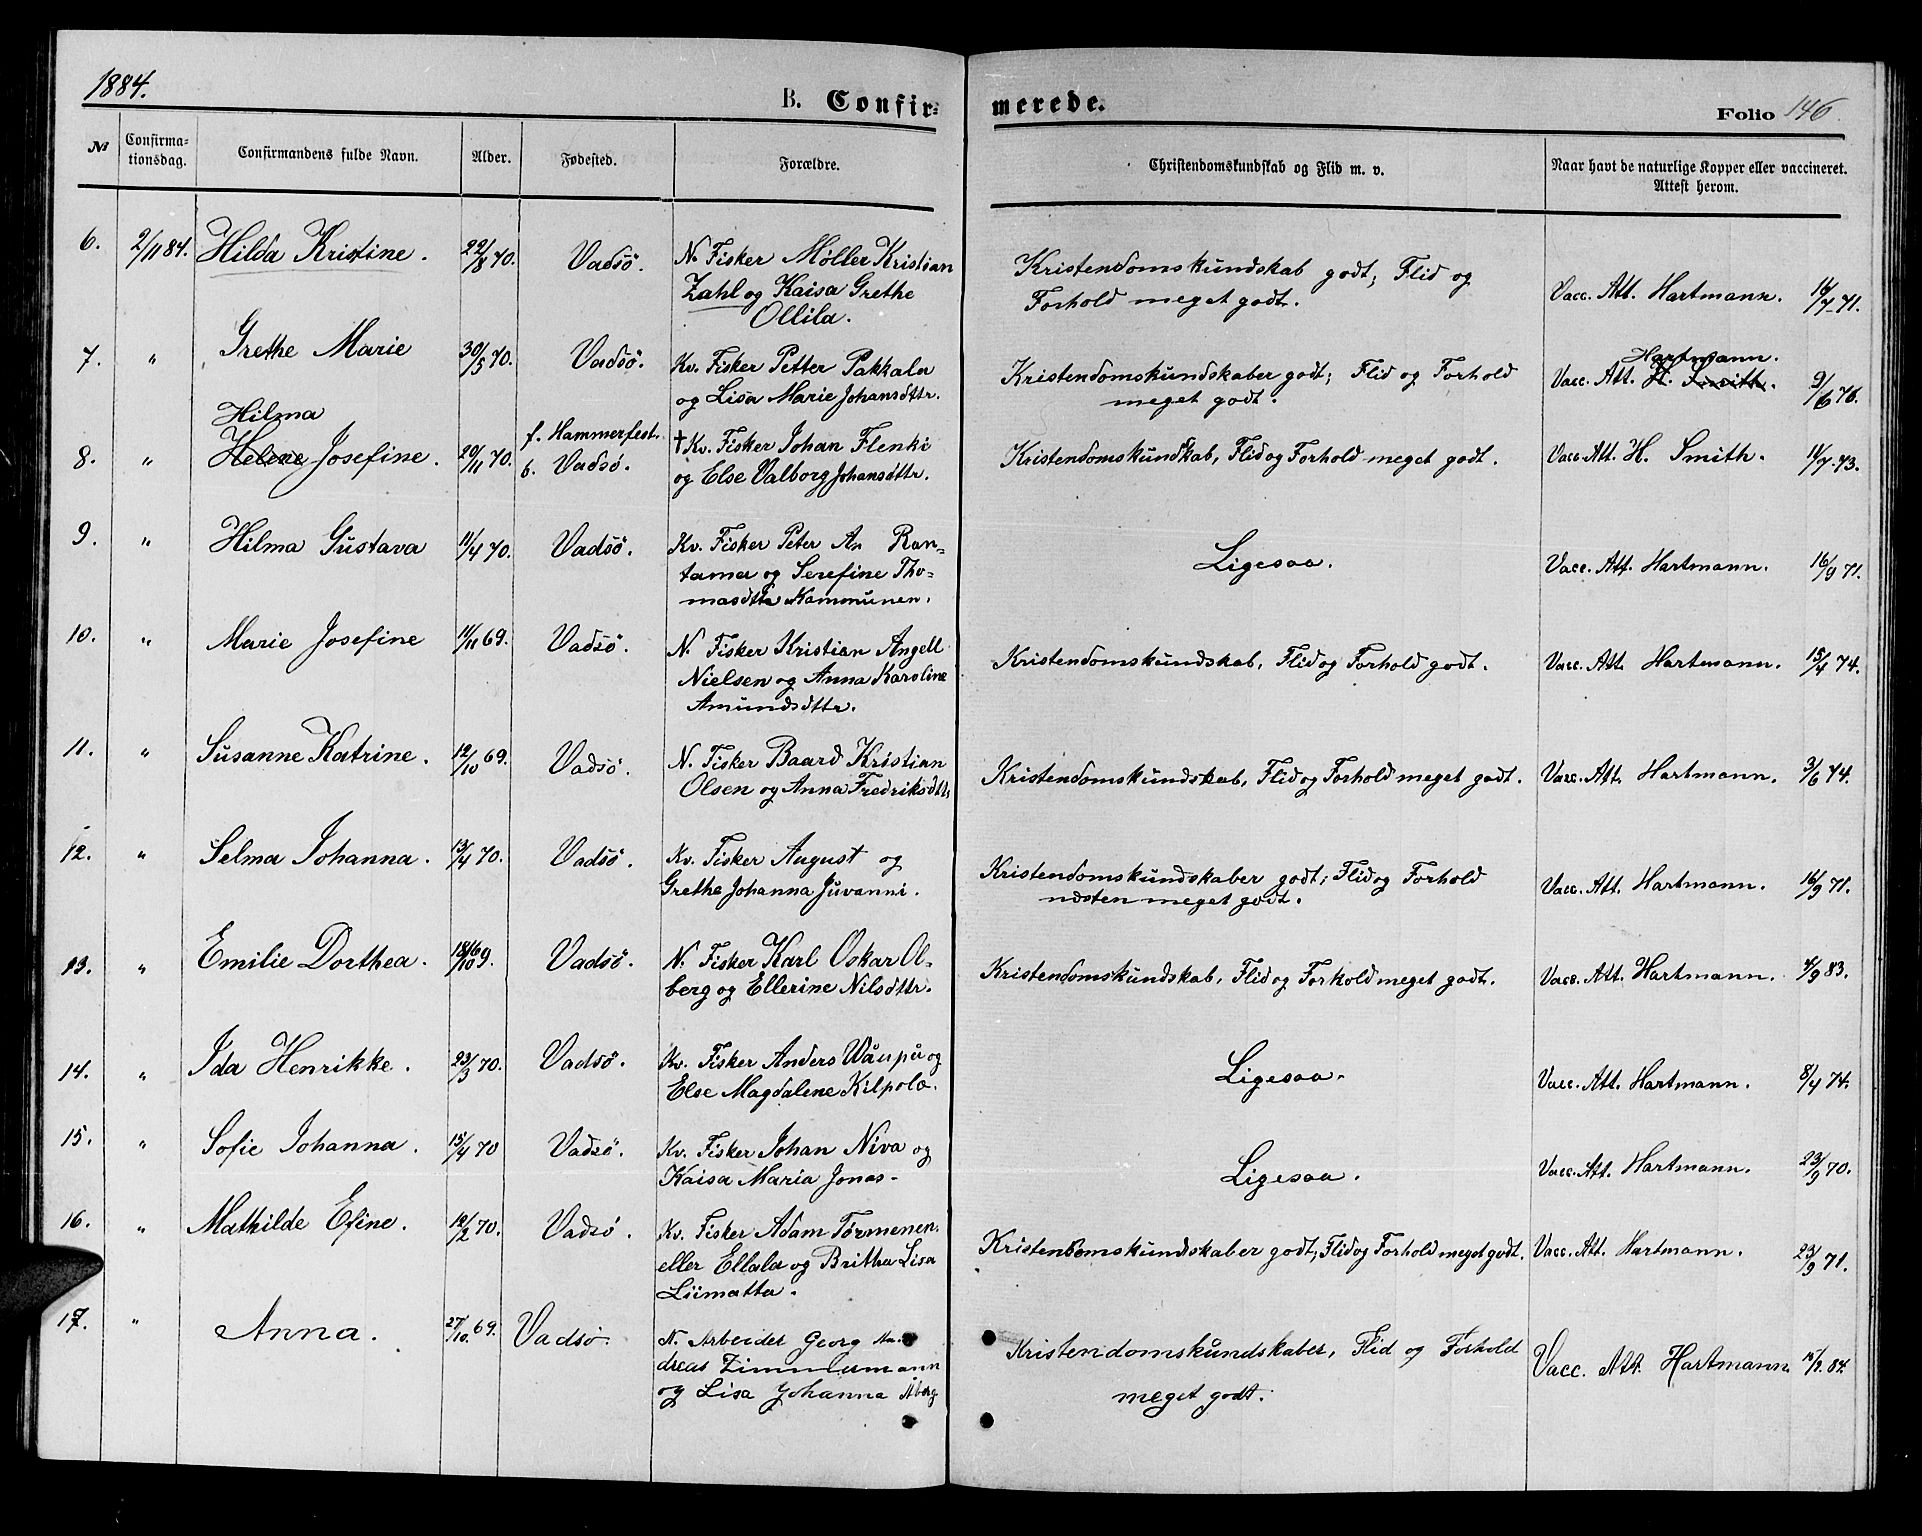 1884.
B. Confir-
merede.
Folio 146
No
Confirma-
tionsdag.
Confirmandens fulde Navn.
Alder.
Fødested.
Forældre.
Christendomskundskab og Flid m. v.
Naar havt de naturlige Kopper eller vaccineret.
Attest herom.
6. 2/11 84. Hilda Kristine. 22/8 70. Vadsö. N. Fisker Möller Kristian
Zahl og Kaisa Grethe
Ollila.
Kristendomskundskab godt; Flid og
Forhold meget godt.
Vacc. Att. Hartmann. 14/7 71.
7. " Grethe Marie 30/5 70. Vadsö. Kv. Fisker Petter Pakkala
og Lisa Marie Johansdttr.
Kristendomskundskaber godt; Flid og Forhold
meget godt.
Hartmann.
Vacc. Att. H. Smith. 9/6 76.
Hilma
8. " Helene Josefine. 20/11 70. f. Hammerfest.
b. Vadsö.
† Kv. Fisker Johan Flenki
og Else Valborg Johansdttr.
Kristendomskundskab, Flid og Forhold meget godt.
Vacc. Att. H. Smith. 11/7 73.
9. " Hilma Gustava 11/4 70. Vadsö. Kv. Fisker Peter An Ran-
tama og Serefine Tho-
masdttr Kommunen.
Ligesaa.
Vacc. Att. Hartmann. 16/9 71.
10. " Marie Josefine 11/11 69. Vadsö. N. Fisker Kristian Angell
Nielsen og Anna Karoline
Amundsdttr.
Kristendomskundskab, Flid og Forhold godt.
Vacc. Att. Hartmann. 15/4 74.
11. " Susanne Katrine. 12/10 69. Vadsö. N. Fisker Baard Kristian
Olsen og Anna Fredriksdttr
Kristendomskundskab, Flid og Forhold meget godt.
Vacc. Att. Hartmann. 3/6 74.
12. " Selma Johanna. 13/4 70. Vadsö. Kv. Fisker August og
Grethe Johanna Juvanni.
Kristendomskundskaber godt; Flid og Forhold
næsten meget godt.
Vacc. Att. Hartmann. 16/9 71.
13. " Emilie Dorthea. 18/10 69. Vadsö. N. Fisker Karl Oskar Ol-
berg og Ellerine Nilsdttr.
Kristendomskundskab, Flid og Forhold meget godt.
Vacc. Att. Hartmann. 4/9 83.
14. " Ida Henrikke. 23/3 70. Vadsö. Kv. Fisker Anders Waupu og
Else Magdalene Kilpola.
Ligesaa.
Vacc. Att. Hartmann. 8/4 74.
15. " Sofie Johanna. 15/4 70 Vadsö. Kv. Fisker Johan Niva og
Kaisa Maria Jonas-
Ligesaa.
Vacc. Att. Hartmann. 23/9 70.
16. " Mathilde Efine. 12/2 70. Vadsö. Kv. Fisker Adam Törmenen
eller Ellala og Britha Lisa
Liimatta.
Kristendomskundskaber godt, Flid og Forhold meget godt.
Vacc. Att. Hartmann. 23/9 71.
17. " Anna. 27/10 69. Vadsö. N. Arbeider Georg An-
dreas Zimmermann
og Lisa Johanna Åberg
Kristendomskundskaber, Flid og Forhold
meget godt.
Vacc. Att. Hartmann 84.